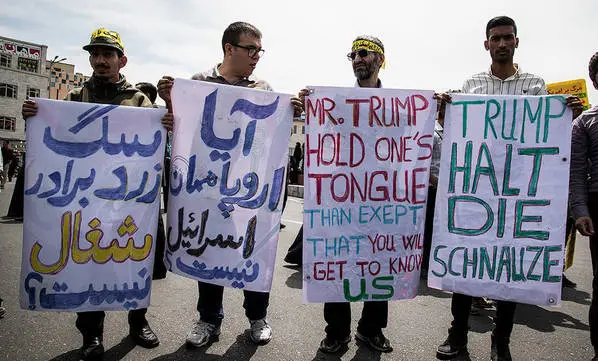 سگ
زرد برادر
شغال
نیست؟
آیا
اروپا همان
اسرائیل
نیست
MR. TRUMP
HOLD ONE'S
TONGUE
THAN EXEPT
THAT YOU WILL
GET TO KNOW
US
TRUMP
HALT
DIE
SCHNAUZE